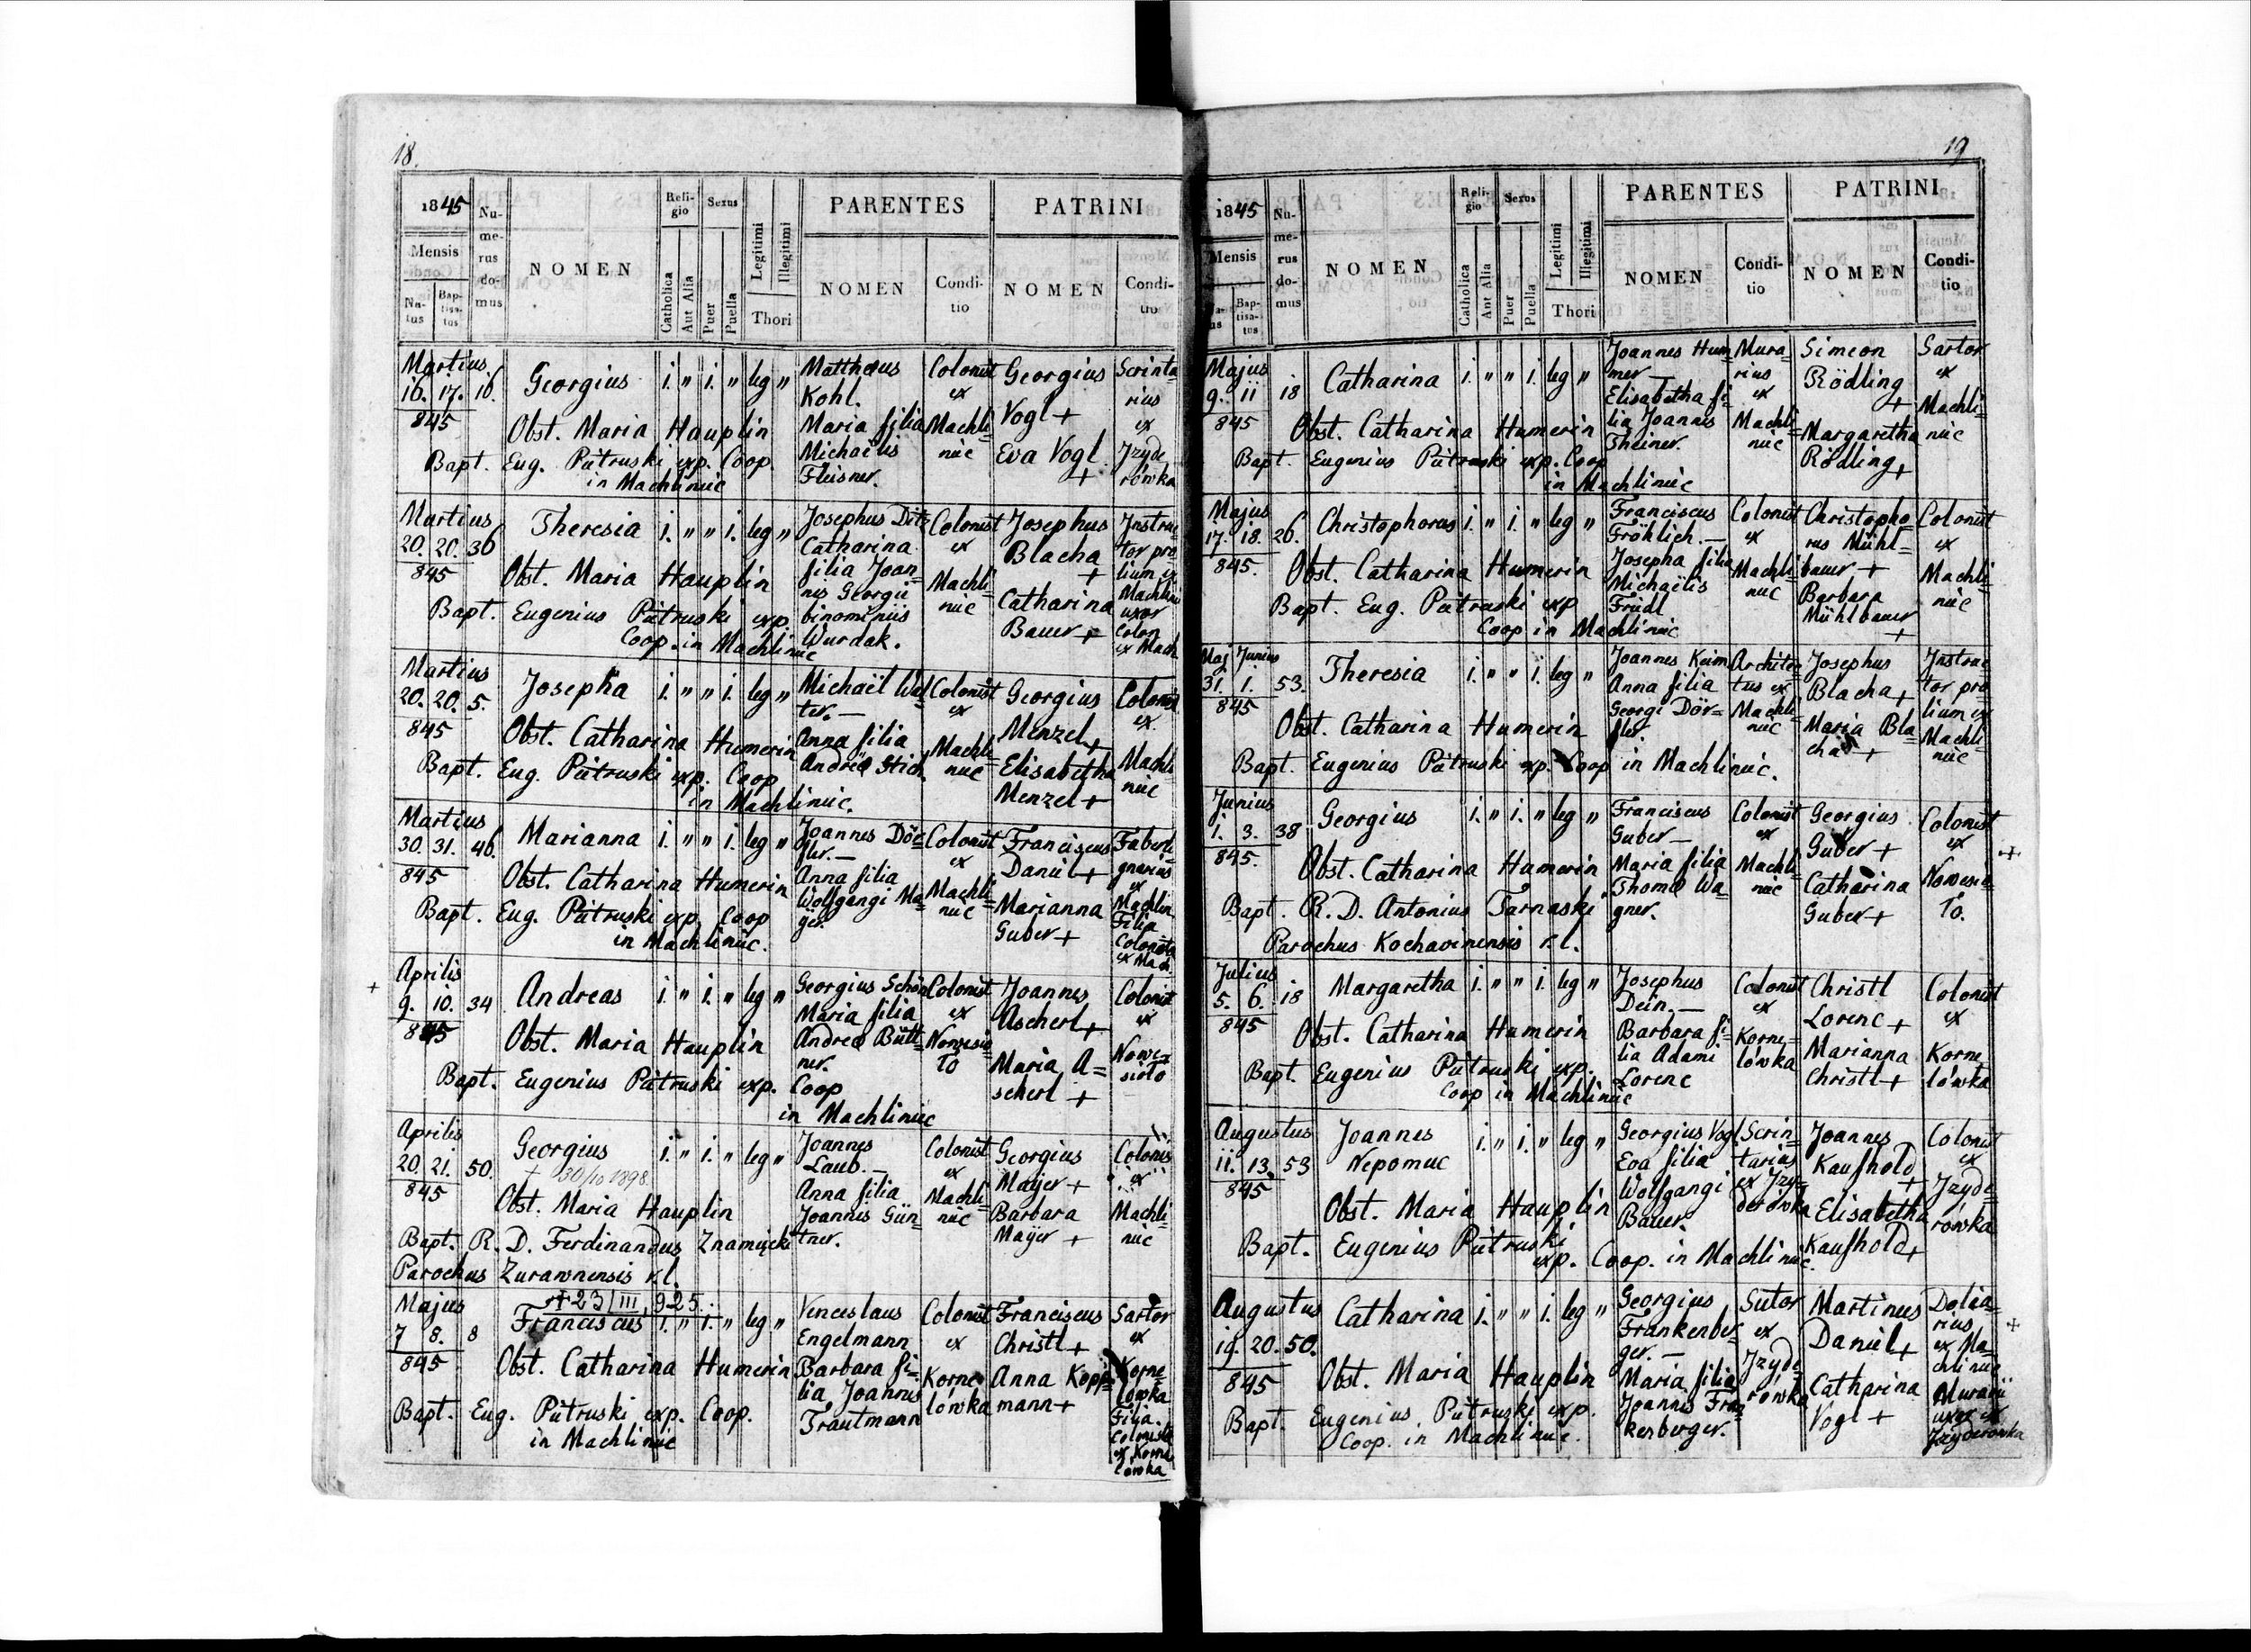 18.
1845
Mensis
Na-
tus
Bap-
tisa-
tus
Nu-
me-
rus
do-
mus
NOMEN
Reli-
gio
Catholica
Aut Alia
Sexus
Puer
Puella
Legitimi
Illegitimi
Thori
PARENTES
NOMEN
Condi-
tio
PATRINI
NOMEN
Condi-
tio
Martius
16. 17. 16.
845
Georgius i. " i. " leg "
Obst. Maria Hauplin
Bapt. Eug. Pietruski exp. Coop.
in Machliniec
Matthaeus
Kohl.
Maria filia
Michaëlis
Fleisner.
Colonist
ex
Machli=
niec
Georgius
Vogl +
Eva Vogl
+
Scrinta
rius
ex
Jzyde
rówka
Martius
20. 20. 36
845
Theresia i. " " i. leg "
Obst. Maria Hauplin
Bapt. Eugenius Pietruski exp.
Coop. in Machliniec
Josephus Dit=
Catharina
filia Joan=
nis Georgii
binominiis
Wurdak.
Colonist
ex
Machli=
niec
Josephus
Blacha
+
Catharina
Bauer +
Jnstruc
tor pro
lium ex
Machlin
uxor
Colon
ex Mach
Martius
20. 20. 5.
845
Josepha i. " " i. leg "
Obst. Catharina Humerin
Bapt. Eug. Pietruski exp. Coop
in Machliniec.
Michaël Wal=
ter. —
Anna filia
Andreä Stich
Colonist
ex
Machli=
niec
Georgius
Menzel +
Elisabetha
Menzel +
Colonist
ex
Machli
niec
Martius
30. 31. 46.
845
Marianna i. " " i. leg "
Obst. Catharina Humerin
Bapt. Eug. Pietruski exp. Coop
in Machliniec.
Joannes Dör=
fler. —
Anna filia
Wolfgangi Ma=
jer.
Colonist
ex
Machli=
niec
Franciscus
Daniel +
Marianna
Guber +
Faberli
gnarius
ex
Machlin
Filia
Colonista
ex Mach
+
Aprilis
9. 10. 34
845
Andreas i. " i. " leg "
Obst. Maria Hauplin
Bapt. Eugenius Pietruski exp. Coop
in Machliniec
Georgius Schön
Maria filia
Andreä Bütt=
ner.
Colonist
ex
Nowesio
ło
Joannes
Ascherl +
Maria A=
scherl +
Colonist
ex
Nowe=
sioło
Aprilis
20. 21. 50.
845
Georgius i. " i. " leg "
+ 30/10 1898
Obst. Maria Hauplin
Bapt. R. D. Ferdinandus Znamięcki
Parochus Zurawnensis r.l.
Joannes
Laub. —
Anna filia
Joannis Gün=
tner.
Colonist
ex
Machli=
niec
Georgius
Mayer +
Barbara
Mayer +
Colonis
ex
Machli=
niec
Majus
7 8. 8
845
+ 23/III 925.
Franciscus i. " i. " leg "
Obst. Catharina Humerin
Bapt. Eug. Pietruski exp. Coop.
in Machliniec
Venceslaus
Engelmann
Barbara fi=
lia Joannis
Trautmann
Colonist
ex
Korne
lówka
Franciscus
Christl +
Anna Kopp=
mann +
Sartor
ex
Korne=
lówka
Filia
Colonista
ex Korne
lówka
19
1845
Mensis
Bap-
tisa-
tus
Nu-
me-
rus
do-
mus
NOMEN
Reli-
gio
Catholica
Aut Alia
Sexus
Puer
Puella
Legitimi
Illegitimi
Thori
PARENTES
NOMEN
Condi-
tio
PATRINI
NOMEN
Condi-
tio
Majus
9. 11 18
845
Catharina i. " " i. leg "
Obst. Catharina Humerin
Bapt. Eugenius Pietruski exp. Coop
in Machliniec
Joannes Hum=
mer —
Elisabetha fi=
lia Joannis
Theiner.
Mura=
rius
ex
Machli=
niec
Simeon
Rödling
+
Margaretha
Rödling +
Sartor
ex
Machli=
niec
Majus
17. 18. 26.
845.
Christophorus i. " i. " leg "
Obst. Catharina Humerin
Bapt. Eug. Pietruski exp
Coop in Machliniec
Franciscus
Fröhlich. —
Josepha filia
Michaëlis
Friedl
Colonist
ex
Machli
niec
Christopho=
rus Mühl=
bauer +
Barbara
Mühlbauer
+
Colonist
ex
Machli
niec
Maj Junius
31. 1. 53.
845
Theresia i. " " i. leg "
Obst. Catharina Humerin
Bapt. Eugenius Pietruski exp. Coop in Machliniec.
Joannes Keim
Anna filia
Georgi Dör=
fler.
Architec
tus ex
Machli=
niec
Josephus
Blacha +
Maria Bla=
cha +
Jnstruc
tor pro
lium ex
Machli
niec
Junius
1. 3. 38
845.
Georgius i. " i. " leg "
Obst. Catharina Humerin
Bapt. R. D. Antonius Tarnaski
Parochus Kochavinensis r.l.
Franciscus
Guber —
Maria filia
Thomä Wa=
gner.
Colonist
ex
Machli=
niec
Georgius
Guber +
Catharina
Guber +
Colonist
ex
Nowesio
ło.
+
Julius
5. 6. 18
845
Margaretha i. " " i. leg "
Obst. Catharina Humerin
Bapt. Eugenius Pietruski exp.
Coop in Machliniec
Josephus
Dein. —
Barbara fi=
lia Adami
Lorenc
Colonist
ex
Korne=
lówka
Christl
Lorenc +
Marianna
Christl +
Colonist
ex
Korne
lówka
Augustus
11. 13. 53
845
Joannes
Nepomuc i. " i. " leg "
Obst. Maria Hauplin
Bapt. Eugenius Pietruski
exp. Coop. in Machliniec.
Georgius Vogl
Eva filia
Wolfgangi
Bauer.
Scrin=
tarius
ex Jzy=
derówka
Joannes
Kaufhold
+
Elisabetha
Kaufhold +
Colonist
ex
Jzyde=
rówka
Augustus
19. 20. 50.
845
Catharina i. " " i. leg "
Obst. Maria Hauplin
Bapt. Eugenius Pietruski exp.
Coop. in Machliniec.
Georgius
Frankenber=
ger. —
Maria filia
Joannis Fran
kenberger.
Sutor
ex
Jzyde
rówka
Martinus
Daniel +
Catharina
Vogl +
Dolia=
rius
ex Ma=
chliniec
Murarii
uxor ex
Jzyderówka
+